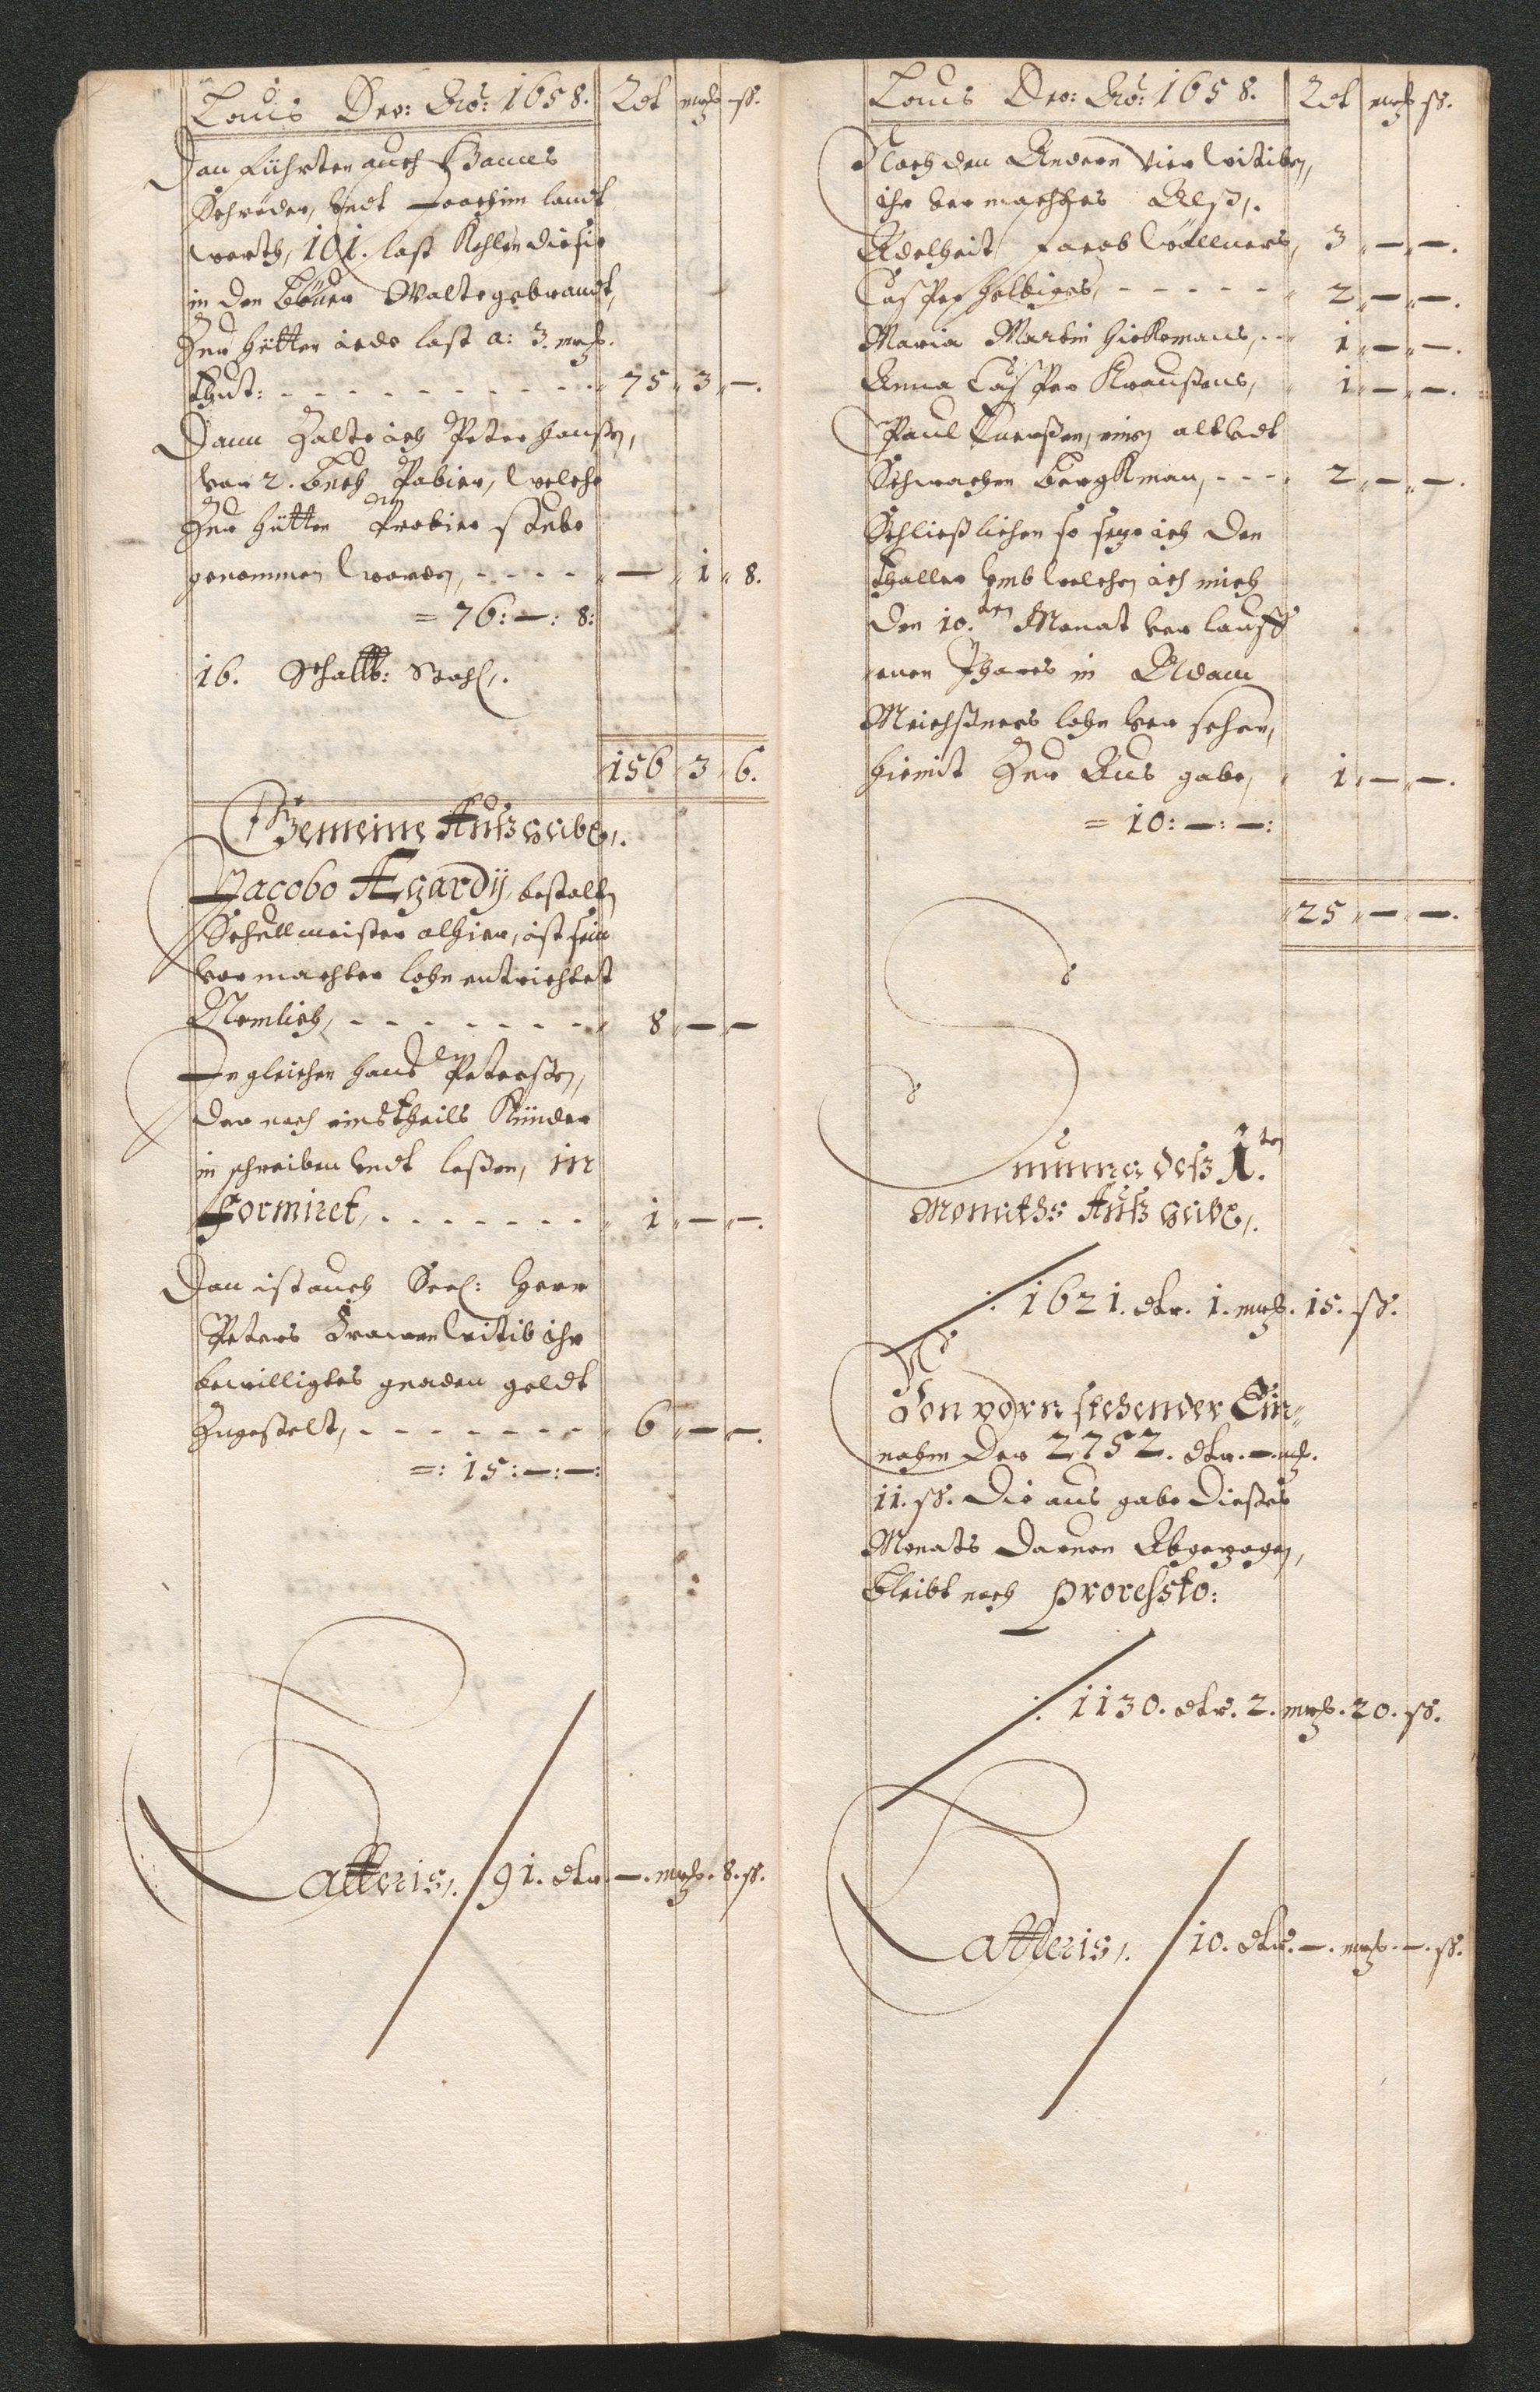 Laus Deo: Aō: 1658. Rdt mrk ss.
Dan führten auch Hanns
Schröder, vndt Joachim landt
werth, 101. last Kohlen die sie
in den Walte gebrandt,
Zur hütten iede last a: 3. mrk.
thut: - - - - - - - - - 75 " 3 " —.
Dann Zalte ich Peter hanßen,
vor 2. buch Pabier, welche
Zur hütten Probier stube
genommen worden, - - - - " — " 1 " 8.
= 76: —: 8:
16. Schallb: Stahl,.
156 " 3 " 6.
Gemeine Außgabe,.
Jacobo Ægardij, bestalten
Schullmeister alhier, ist sein
vermachter lohn entrichtet
Nemlich, - - - - - - - - " 8 " — " —
Ingleichen Hans Peterßen,
der noch einstheils Kinder
in schreiben vndt leßen, in
formiret, - - - - - - - " 1 " — " —.
Dan ist auch Seel: Herr
Peters Witib ihr
bewilligtes gnaden geldt
Zugestelt, - - - - - - - " 6 " — " —.
=: 15: —: —:
Latteris,. / 91. dtr. —. mrk. 8. ss.
Laus Deo: Aō: 1658. Rdt mrk ss.
Noch den Andern vier Witiben,
ihr vermachtes Alß,.
Adelheit Jacob Wöllners, 3 " — " —.
Casper Helbiges, - - - - - " 2 " — " —.
Maria Martin Hickemans, - - " 1 " — " —.
Anna Casper Kraußens, " 1 " — " —.
Paul einen alt vndt
Schwachen Bergkman, - - - - 2 " — " —.
Schließlichen so setze ich den
thaller vmb welchen ich mich
den 10.ten Monat verlauff
enen Jhares in Adam
Meichßners lohn versehen,
hiemit Zur Aus gabe, " 1 " — " —.
= 10: —: —:
" 25 " — " —.
Summa deß 1.ten
Monaths Außgabe,.
/: 1621. dtr. 1. mrk. 15. ss.
Von vorn stehender Ein=
nahm der 2752. dtr. —. mk.
11. ss. Die aus gabe dießes
Monats dauon Abgezogen,
bleibt noch pro resto:
/: 1130. dtr. 2. mrk. 20. ss.
Latteris,. / 10. dtr. —. mrk. —. ss.